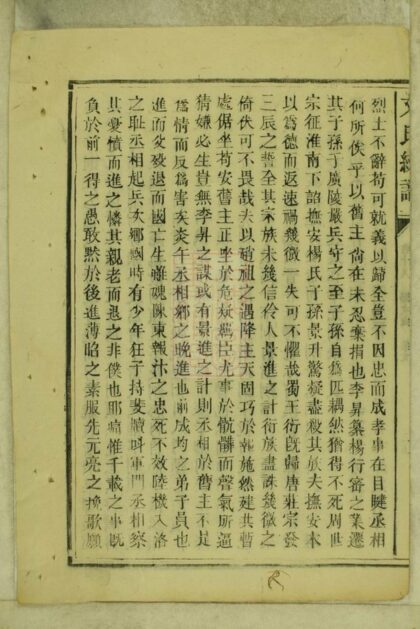 烈士不辭苟可就義以歸全豈不因忠而成孝事在目睫丞相
何所俟乎以舊主尚在未忍棄捐也李昇纂楊行密之業遷
其子孫于廣陵嚴兵守之至子孫自為匹耦然猶得不死周世
宗征淮南下詔撫安楊氏子孫景升驚疑盡殺其族夫撫安本
以為德而返速禍幾微一失可不懼哉蜀王衍既歸唐莊宗發
三辰之誓全其宗族未幾信伶人景進之計衍族盡誅幾微之
倚伏可不畏哉夫以趙祖之遇降主天固巧於報施然建共暫
處倨坐苟安舊主正坐於危疑羈臣尤事於骯髒而聲氣所逼
猜嫌必生豈無李昇之謀或有景進之計則丞相於舊主不足
為情而反為害矣炎午丞相鄉之晚進也前成均之弟子員也
進而父歿退而國亡生雖愧陳東報汴之忠死不效陸機入洛
之恥丞相起兵次鄉國時有少年狂子持斐牘叫軍門丞相察
其憂憤而進之憐其親老而退之非僕也耶痛惟千載之事既
負於前一得之愚敢默於後進薄昭之素服先元亮之挽歌願